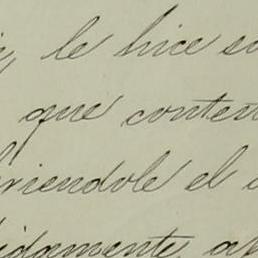 le hice
que conten
riendole el
idamente